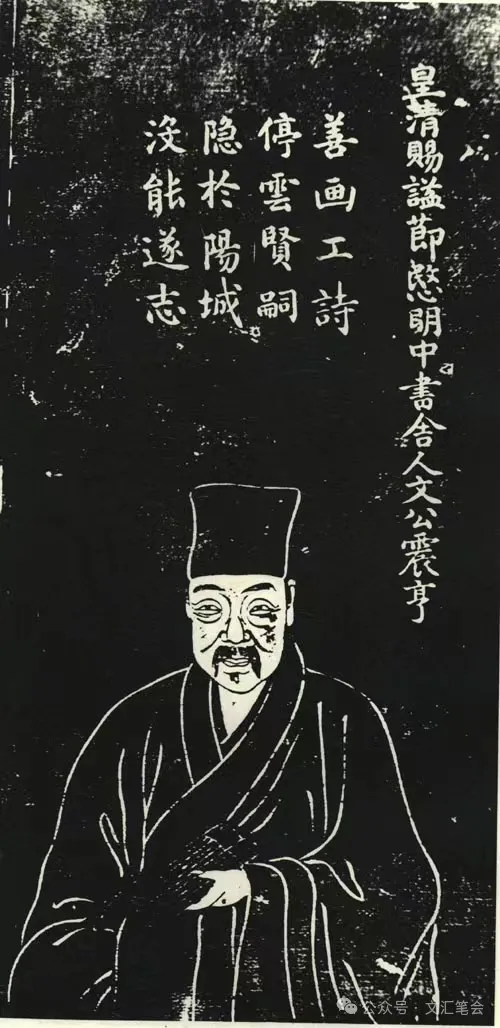 皇清賜謚節愍明中書舍人文公震亨
善画工詩
停雲賢嗣
隐於陽城
没能遂志
公众号·文汇笔会